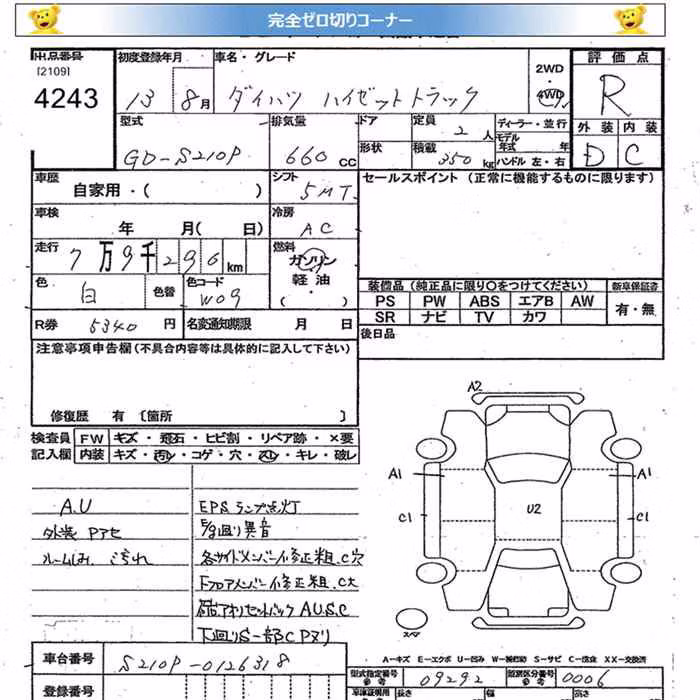 完全ゼロ切りコーナー
出品番号 初度登録年月 車名・グレード 評価点
[2109]
4243 13 8月 ダイハツ ハイゼットトラック 2WD・4WD R
型式 排気量 ドア 定員 2人 ディーラー・並行 外装 内装
モデル年式 年
GD-S210P 660cc 形状 積載 350kg ハンドル 左・右 D C
車歴 シフト セールスポイント (正常に機能するものに限ります)
自家用・( ) 5MT
車検 冷房
年 月( 日) AC
走行 燃料
7万9千296km ガソリン
軽油
・( )
色 色替 色コード 装備品 (純正品に限り〇をつけてください) 新車保証書
白 W09 PS PW ABS エアB AW 有・無
SR ナビ TV カワ
R券 5340円 名変通知期限 月 日 後日品
注意事項申告欄(不具合内容等は具体的に記入して下さい)
修復歴 有 〔箇所 〕
検査員 FW キズ・飛石・ヒビ割・リペア跡・×要
記入欄 内装 キズ・汚レ・コゲ・穴・スレ・キレ・破レ
A2
A1 A1
C1 U2 C1
スペア
A.U EPSランプ点灯
外装 Pアセ 異音
ルームしみ、汚れ 各サイドメンバー修正粗.C穴
Fフロアメンバー修正粗.C大
A.U.S.C
下廻りS一部C Pヌリ
車台番号 S210P-0126318
A-キズ E-エクボ U-凹み W-補修跡 S-サビ C-腐食 XX-交換済
型式指定番号 09292 類別区分番号 0006
登録番号 長さ 幅 高さ